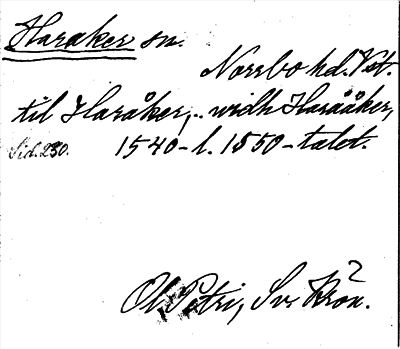 Haraker sn.
Norrbo hd. Vst.
til Haråker, .. widh Haraåker,
Sid. 230. 1540- l. 1550-talet.
Ol. Petri, Sv. Krön.